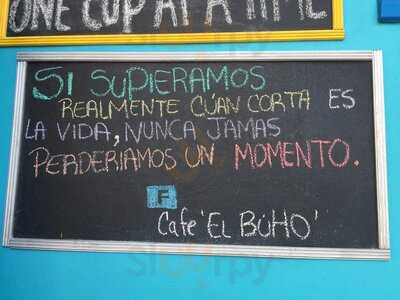 ONE CUP AT A TIME
SI SUPIERAMOS
REALMENTE CÚAN CORTA ES
LA VIDA, NUNCA JAMAS
PERDERIAMOS UN MOMENTO.
F
Café 'EL BÚHO'
sluurpy